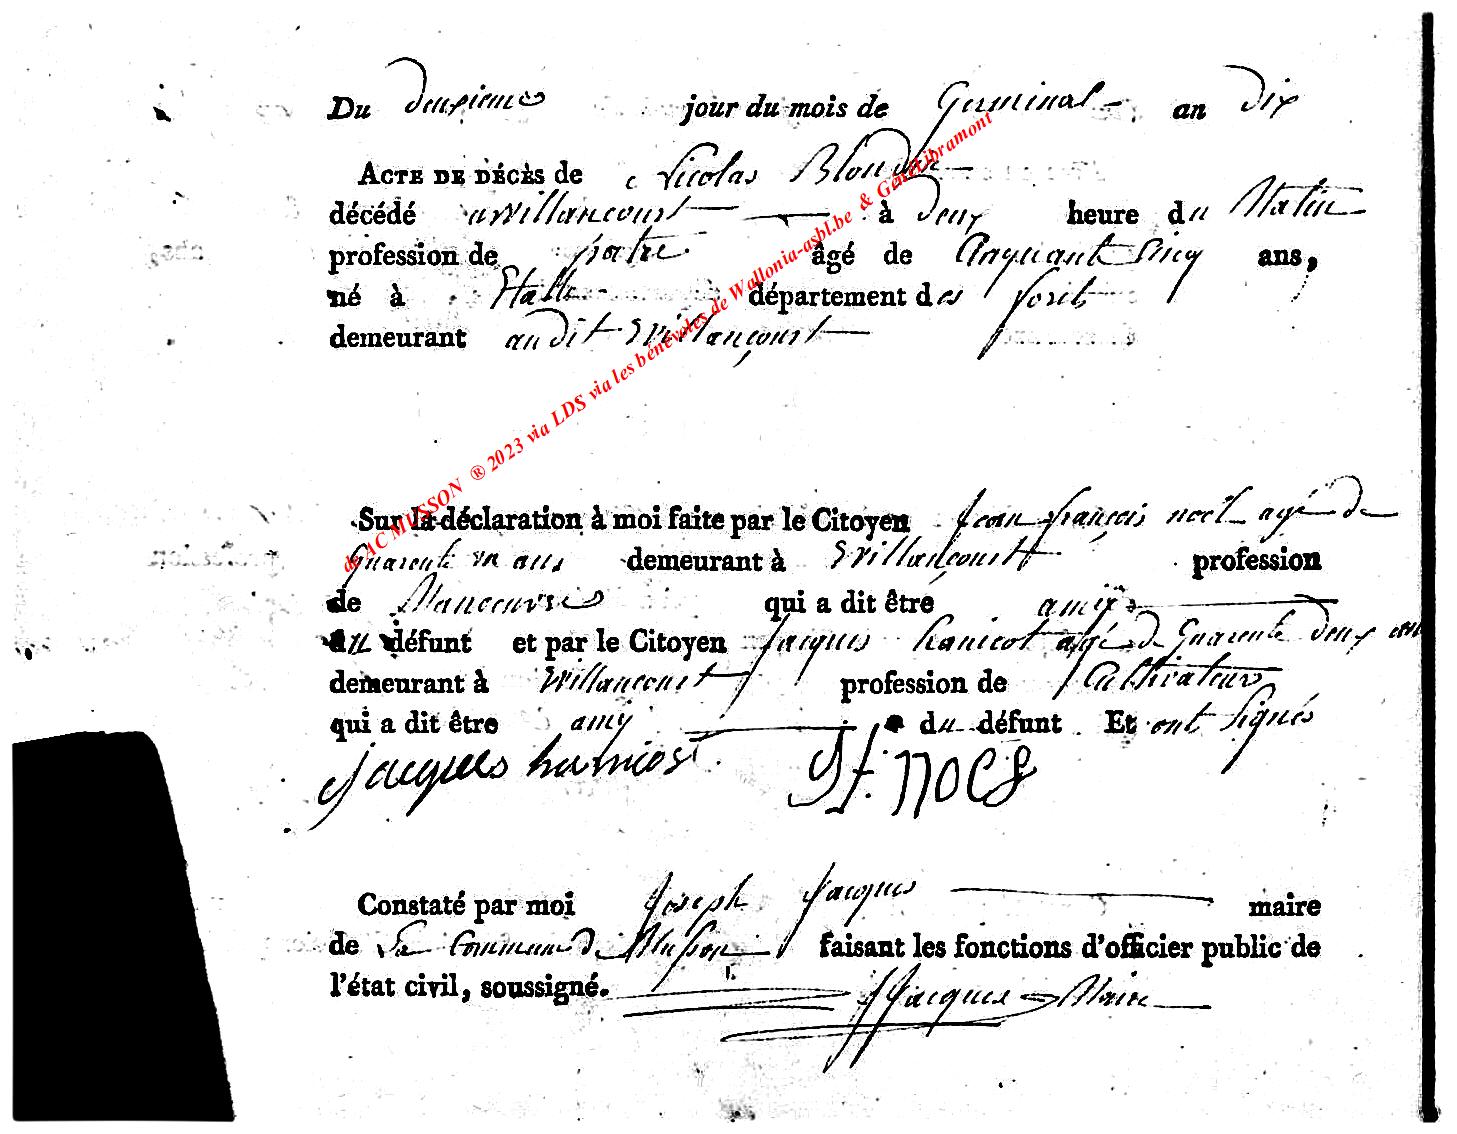 Du deuxieme jour du mois de Germinal an dix
ACTE DE DÉCÈS de Nicolas Blondin
décédé a Willancourt à deux heure du Matin
profession de patre âgé de Cinquant Cinq ans,
né à Halle département des forets
demeurant audit Willancourt
de AC MUSSON ® 2023 via LDS via les bénévoles de Wallonia-asbl.be & GenéLibramont
Sur la déclaration à moi faite par le Citoyen Jean françois noël agé de
quarente un ans demeurant à Willancourt profession
de Maneuvre qui a dit être amÿ
du défunt et par le Citoyen Jacques hanicot agé de quarente deux ans
demeurant à Willancourt profession de Cultivateur
qui a dit être amÿ du défunt Et ont Signés
Jacques J f noel
Constaté par moi Joseph Jacques maire
de La Commune de Musson faisant les fonctions d'officier public de
l'état civil, soussigné. J Jacques Maire